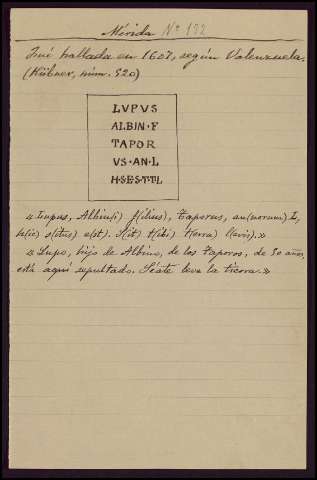 Mérida Nº 132
Fué hallada en 1607, según Valenzuela.
(Hübner, núm. 520)
LVPVS
ALBIN·F
TAPOR
VS·AN·L
H·S·E·S·T·T·L
«Lupus, Albin(i) f(ilius), Taporus, an(norum) L,
h(ic) s(itus) e(st). S(it) t(ibi) t(erra) l(evis).»
«Lupo, hijo de Albino, de los Taporos, de 50 años,
está aquí sepultado. Séate leve la tierra.»